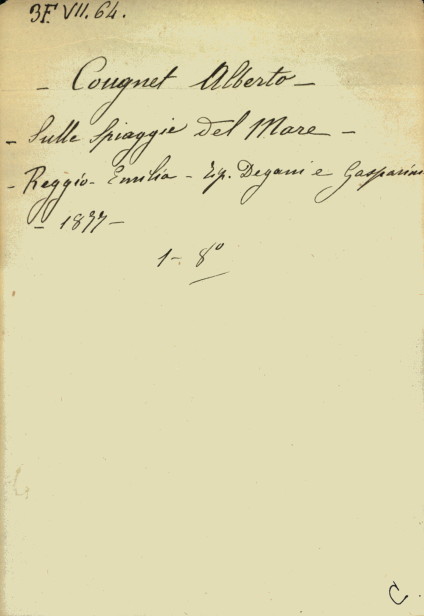 3F. VII. 64.
- Cougnet Alberto -
- Sulle Spiaggie del Mare -
- Reggio-Emilia - Tip. Degani e Gasparini
- 1877 -
1 - 8º
C